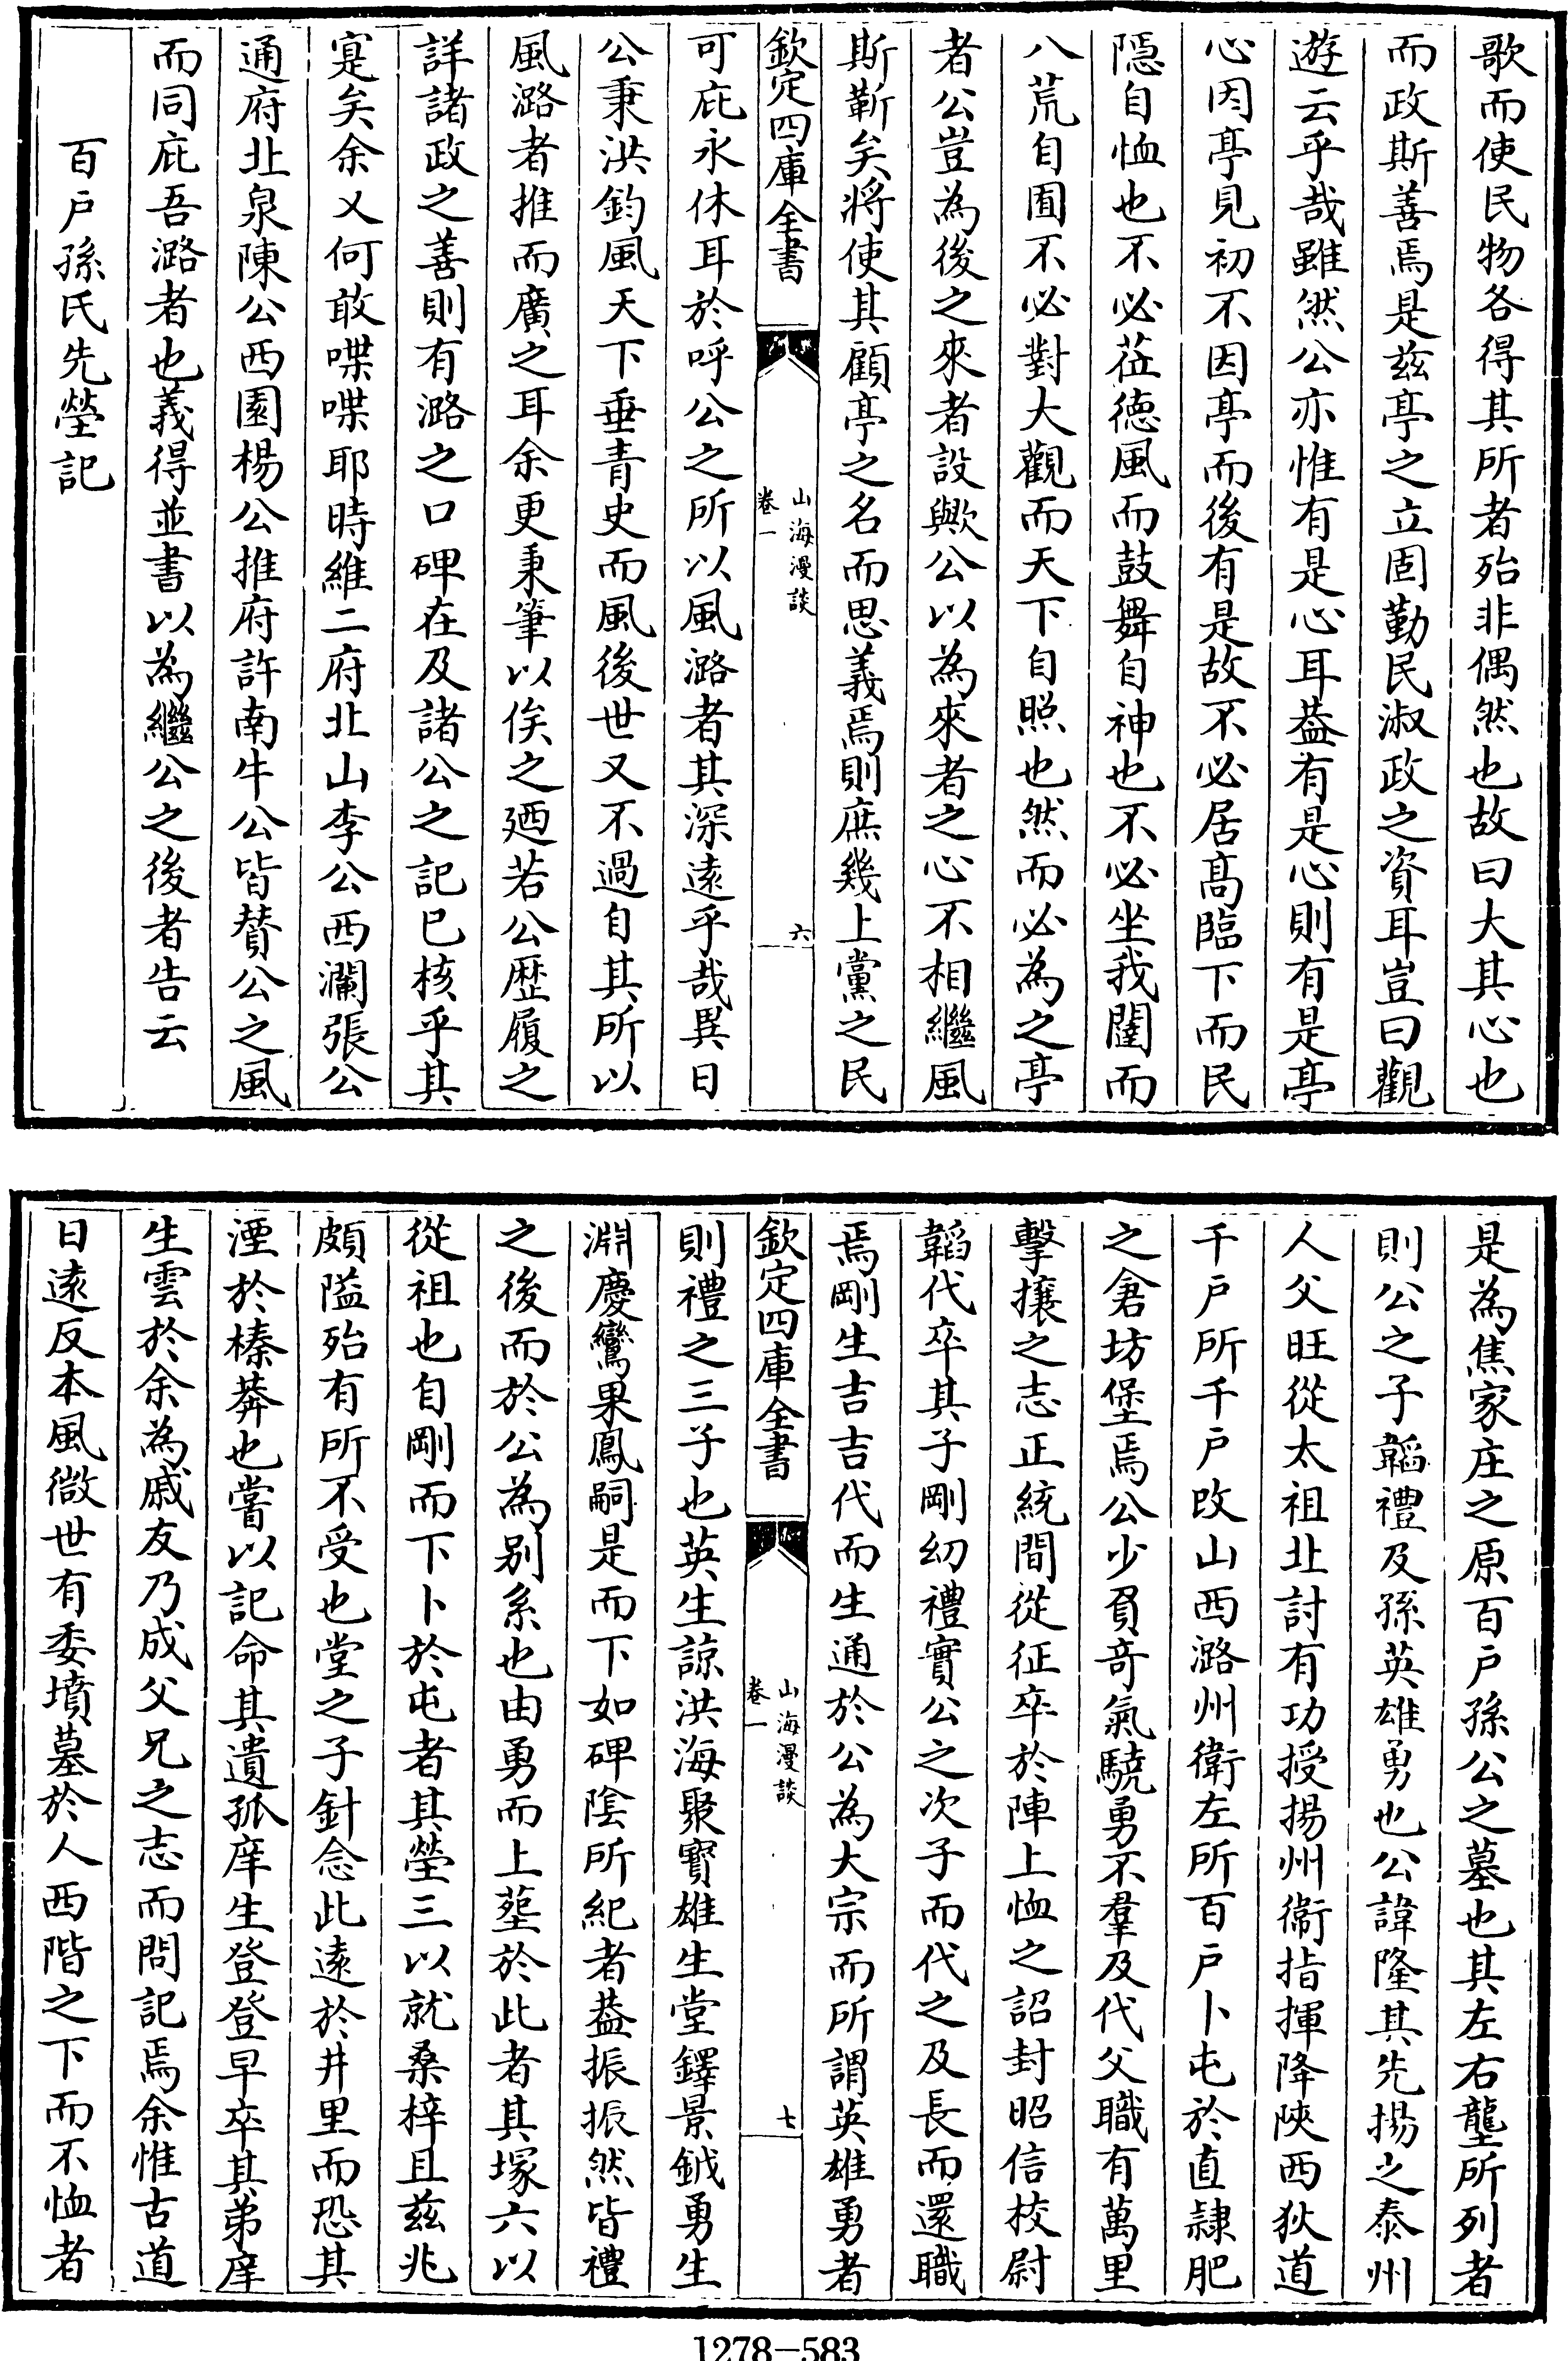 歌而使民物各得其所者殆非偶然也故曰大其心也
而政斯善焉是兹亭之立固勤民淑政之資耳豈曰觀
遊云乎哉雖然公亦惟有是心耳葢有是心則有是亭
心因亭見初不因亭而後有是故不必居髙臨下而民
隠自恤也不必莅徳風而鼓舞自神也不必坐我闥而
八荒自囿不必對大觀而天下自照也然而必為之亭
者公豈為後之來者設歟公以為來者之心不相繼風
斯靳矣將使其顧亭之名而思義焉則庶幾上黨之民
欽定四庫全書
山海漫談
卷一
六
可庇永休耳於呼公之所以風潞者其深遠乎哉異日
公秉洪鈞風天下垂青史而風後世又不過自其所以
風潞者推而廣之耳余更秉筆以俟之廼若公歴履之
詳諸政之善則有潞之口碑在及諸公之記已核乎其
寔矣余又何敢喋喋耶時維二府北山李公西瀾張公
通府北泉陳公西園楊公推府許南牛公皆賛公之風
而同庇吾潞者也義得並書以為繼公之後者告云
百戸孫氏先塋記
是為焦家庄之原百戸孫公之墓也其左右壟所列者
則公之子韜禮及孫英雄勇也公諱隆其先揚之泰州
人父旺從太祖北討有功授揚州衞指揮降陜西狄道
千戸所千戸改山西潞州衛左所百戸卜屯於直隷肥
之倉坊堡焉公少負奇氣驍勇不羣及代父職有萬里
擊攘之志正統間從征卒於陣上恤之詔封昭信校尉
韜代卒其子剛幼禮實公之次子而代之及長而還職
焉剛生吉吉代而生通於公為大宗而所謂英雄勇者
欽定四庫全書
山海漫談
卷一
七
則禮之三子也英生諒洪海聚寳雄生堂鐸景鉞勇生
淵慶鸞果鳳嗣是而下如碑隂所紀者葢振振然皆禮
之後而於公為别系也由勇而上塟於此者其塚六以
從祖也自剛而下卜於屯者其塋三以就桑梓且兹兆
頗隘殆有所不受也堂之子針念此逺於井里而恐其
湮於榛莽也嘗以記命其遺孤庠生登登早卒其弟庠
生雲於余為戚友乃成父兄之志而問記焉余惟古道
日逺反本風微世有委墳墓於人西階之下而不恤者
1278-583